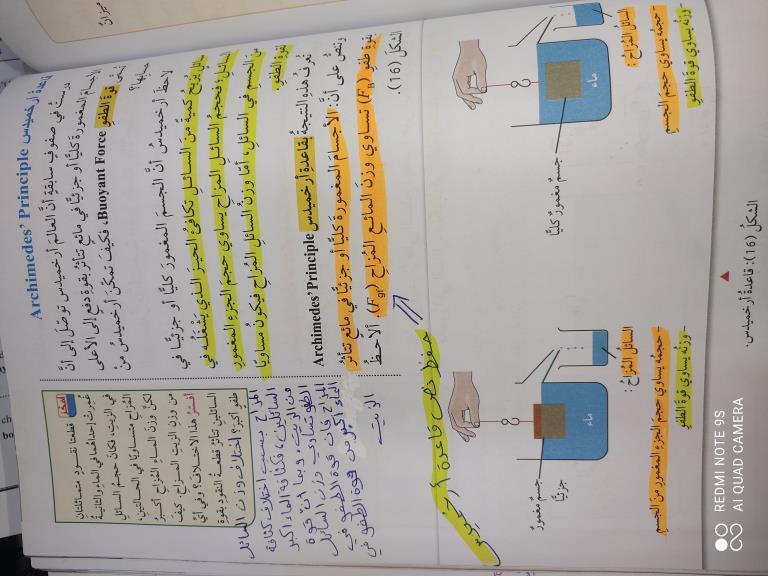 قاعدة أرخميدس Archimedes' Principle
درستُ في صفوفٍ سابقةٍ أنَّ العالمَ أرخميدس توصّلَ إلى أنَّ
الأجسامَ المغمورةَ كليًّا أو جزئيًّا في مائعٍ تتأثرُ بقوةِ دفعٍ إلى الأعلى
تُسمّى قوة الطفو Buoyant Force، فكيفَ تمكّنَ أرخميدس منْ
حسابِها؟
لاحظَ أرخميدس أنَّ الجسمَ المغمورَ كليًّا أو جزئيًّا في
سائلٍ يزيحُ كميةً منَ السائلِ تكافئُ الحيزَ الذي يَشغلُه في
السائلِ، فحجمُ السائلِ المُزاحِ يساوي حجمَ الجزءِ المغمورِ
منَ الجسمِ في السائلِ، أمّا وزنُ السائلِ المُزاحِ فيكونُ مساويًا
لقوةِ الطفوِ.
تُعرفُ هذهِ النتيجةُ بقاعدةِ أرخميدس Archimedes' Principle
وتنصُّ على أنَّ: الأجسامَ المغمورةَ كليًّا أو جزئيًّا في مائعٍ تتأثرُ
بقوةِ طفوٍ (F_B) تساوي وزنَ المائعِ المُزاحِ (F_gf). ألاحظُ
الشكلَ (16).
أفكر
قطعتا نقودٍ متماثلتانِ
غُمِرتْ إحداهُما في الماءِ والثانيةُ
في الزيتِ، فكانَ حجمُ السائلِ
المُزاحِ متساويًا في الحالتينِ،
لكنَّ وزنَ الماءِ المُزاحِ أكبرُ
منْ وزنِ الزيتِ المُزاحِ. كيفَ
أفسرُ هذا الاختلافَ؟ وفي أيِّ
السائلينِ تتأثرُ قطعةُ النقودِ بقوةِ
طفوٍ أكبرَ؟
اختلاف وزن السائل
المزاح بسبب اختلاف كثافة
السائلين، فكثافة الماء أكبر
من الزيت. وبما ان قوة
الطفو تساوي وزن السائل
المزاح فان قوة الطفو في
الماء أكبر من قوة الطفو في
الزيت
حفظ نص قاعدة أرخميدس
ماء
جسمٌ مغمورٌ كليًّا
السائلُ المُزاحُ:
-حجمُه يساوي حجمَ الجسمِ
-وزنُه يساوي قوةَ الطفوِ
ماء
جسمٌ مغمورٌ
جزئيًّا
السائلُ المُزاحُ:
-حجمُه يساوي حجمَ الجزءِ المغمورِ منَ الجسمِ
-وزنُه يساوي قوةَ الطفوِ
الشكلُ (16): قاعدةُ أرخميدس.
REDMI NOTE 9S
AI QUAD CAMERA